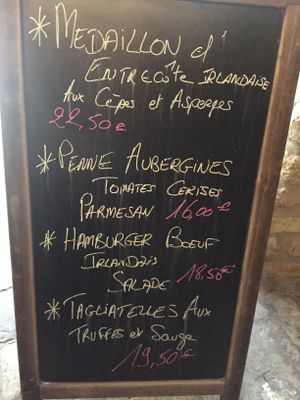 * MEDAILLON d'
ENTRECôte IRLANDAISE
Aux Cèpes et Asperges
22,50€
* PENNE AUBERGINES
TOMATES CERISES
PARMESAN 16,00€
* HAMBURGER BOEUF
IRLANDAIS
SALADE 18,50€
* TAGLIATELLES AUX
TRUFFES et Sauge
19,50€